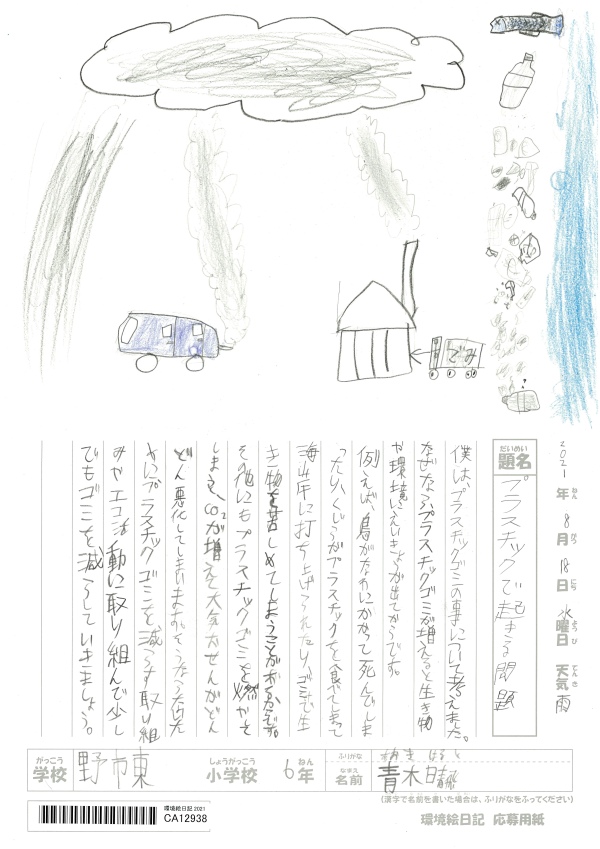 ごみ
2021年ねん 8月がつ 18日にち 水曜日ようび 天気てんき 雨
だいめい
題名
プラスチックで起きる問題
僕は、プラスチックゴミの事について考えました。
なぜならプラスチックゴミが増えると生き物
や環境にえいきょうが出てからです。
例えば、鳥がなわにかかって死んでしま
ったり、くじらがプラスチックを食べてしまって
海岸に打ち上げられたり、ゴミで生
き物を苦しめてしまうことがあるからです。
その他にもプラスチックゴミを燃やして
しまうと、CO2が増え、大気おせんがどん
どん悪化してしまいます。そうならないた
めにプラスチックゴミを減らす取り組
みやエコ活動に取り組んで少し
でもゴミを減らしていきましょう。
がっこう
学校
野市東
しょうがっこう
小学校
6年
ねん
ふりがな
あおき はると
なまえ
名前
青木
(漢字で名前を書いた場合は、ふりがなをふってください)
環境絵日記 2021
CA12938
環境絵日記 応募用紙